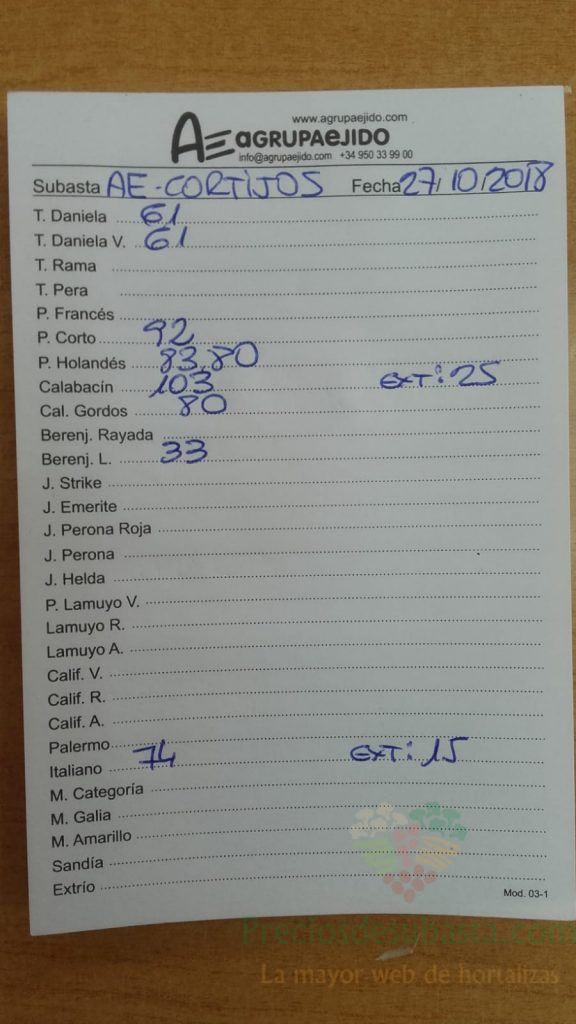 www.agrupaejido.com
AE AGRUPAEJIDO
info@agrupaejido.com +34 950 33 99 00
Subasta AE-CORTIJOS Fecha 27/10/2018
T. Daniela 61
T. Daniela V. 61
T. Rama
T. Pera
P. Francés
P. Corto 92
P. Holandés 83,80
Calabacín 103 EXT: 25
Cal. Gordos 80
Berenj. Rayada
Berenj. L. 33
J. Strike
J. Emerite
J. Perona Roja
J. Perona
J. Helda
P. Lamuyo V.
Lamuyo R.
Lamuyo A.
Calif. V.
Calif. R.
Calif. A.
Palermo
Italiano 74 EXT: 15
M. Categoría
M. Galia
M. Amarillo
Sandía
Extrío
Mod. 03-1
Preciosdesubasta.com
La mayor web de hortalizas